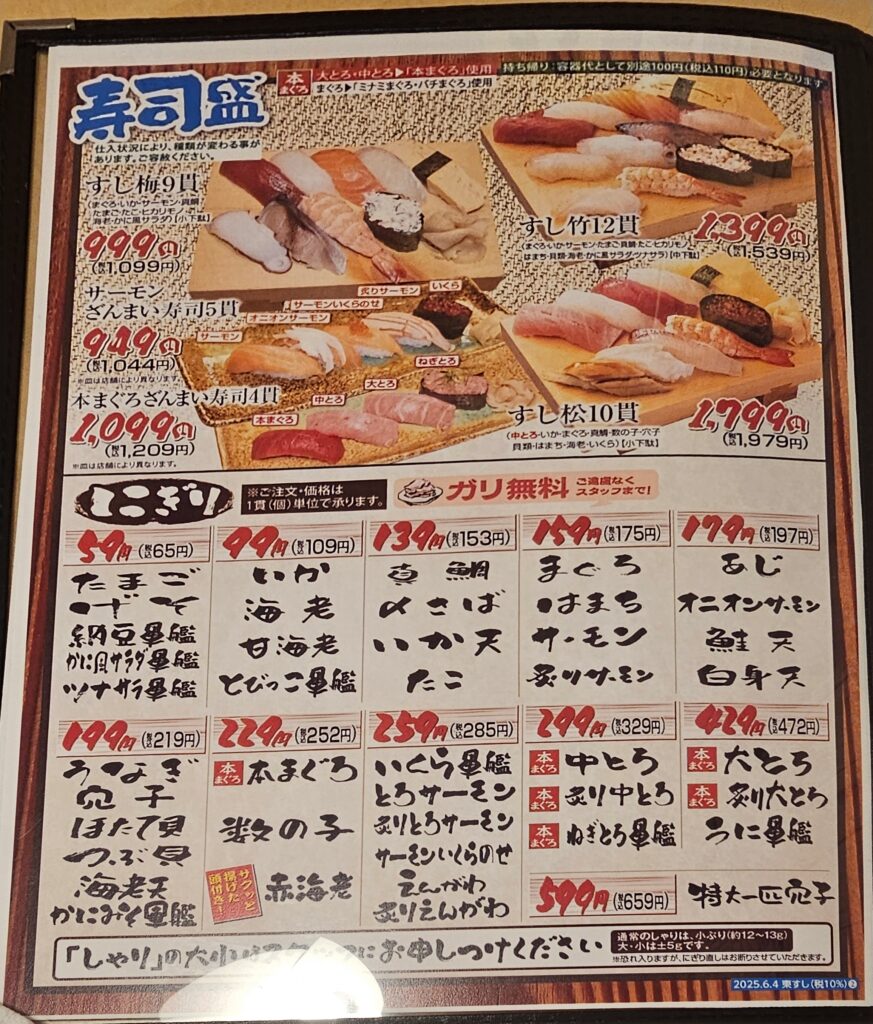 寿司盛
本まぐろ
大とろ・中とろ▶「本まぐろ」使用
まぐろ▶「ミナミまぐろ・バチまぐろ」使用
持ち帰り：容器代として別途100円(税込110円)必要となります。
仕入状況により、種類が変わる事が
あります。ご容赦ください。
すし梅9貫
(まぐろ・いか・サーモン・真鯛
たまご・たこ・ヒカリモノ・
海老・かに風サラダ)【小下駄】
999円
(税込1,099円)
すし竹12貫
(まぐろ・いか・サーモン・たまご・真鯛・たこ・ヒカリモノ
はまち・貝類・海老・かに風サラダ・ツナサラ)【中下駄】
1,399円
(税込1,539円)
サーモン
ざんまい寿司5貫
949円
(税込1,044円)
※皿は店舗により異なります。
サーモン
オニオンサーモン
サーモンいくらのせ
炙りサーモン
いくら
本まぐろざんまい寿司4貫
1,099円
(税込1,209円)
※皿は店舗により異なります。
本まぐろ
中とろ
大とろ
ねぎとろ
すし松10貫
(中とろ・いか・まぐろ・真鯛・数の子・穴子
貝類・はまち・海老・いくら)【小下駄】
1,799円
(税込1,979円)
にぎり
※ご注文・価格は
1貫(個)単位で承ります。
ガリ無料
ご遠慮なく
スタッフまで!
59円(税込65円)
たまご
げそ
納豆軍艦
かに風サラダ軍艦
ツナサラダ軍艦
99円(税込109円)
いか
海老
甘海老
とびっこ軍艦
139円(税込153円)
真鯛
〆さば
いか天
たこ
159円(税込175円)
まぐろ
はまち
サーモン
炙りサーモン
179円(税込197円)
あじ
オニオンサーモン
鮭天
白身天
199円(税込219円)
うなぎ
穴子
ほたて貝
つぶ貝
海老天
かにみそ軍艦
229円(税込252円)
本まぐろ
本まぐろ
数の子
サクッと
揚げた
頭付き!
赤海老
259円(税込285円)
いくら軍艦
とろサーモン
炙りとろサーモン
サーモンいくらのせ
えんがわ
炙りえんがわ
299円(税込329円)
本まぐろ
中とろ
本まぐろ
炙り中とろ
本まぐろ
ねぎとろ軍艦
429円(税込472円)
本まぐろ
大とろ
本まぐろ
炙り大とろ
うに軍艦
599円(税込659円)
特大一匹穴子
「しゃり」の大小はスタッフにお申しつけください
通常のしゃりは、小ぶり(約12～13g)
大・小は±5gです。
※恐れ入りますが、にぎり直しはお断りさせていただきます。
2025.6.4 東すし(税10%)❷